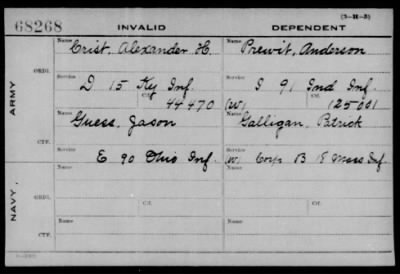 (3-H-3)
68268 INVALID DEPENDENT
Name Crist, Alexander H. Name Prewit, Anderson
ORIG.
Service D 15 Ky Inf. Service I 91 Ind Inf.
ARMY
Ctf. 44470 (W) Ctf. 125001
Name Guess, Jason Name Galligan, Patrick
CTF.
Service E 90 Ohio Inf. Service (W) Corp B 18 Mass Inf.
NAVY.
Name Name
ORIG.
Ctf. Ctf.
Name Name
CTF.